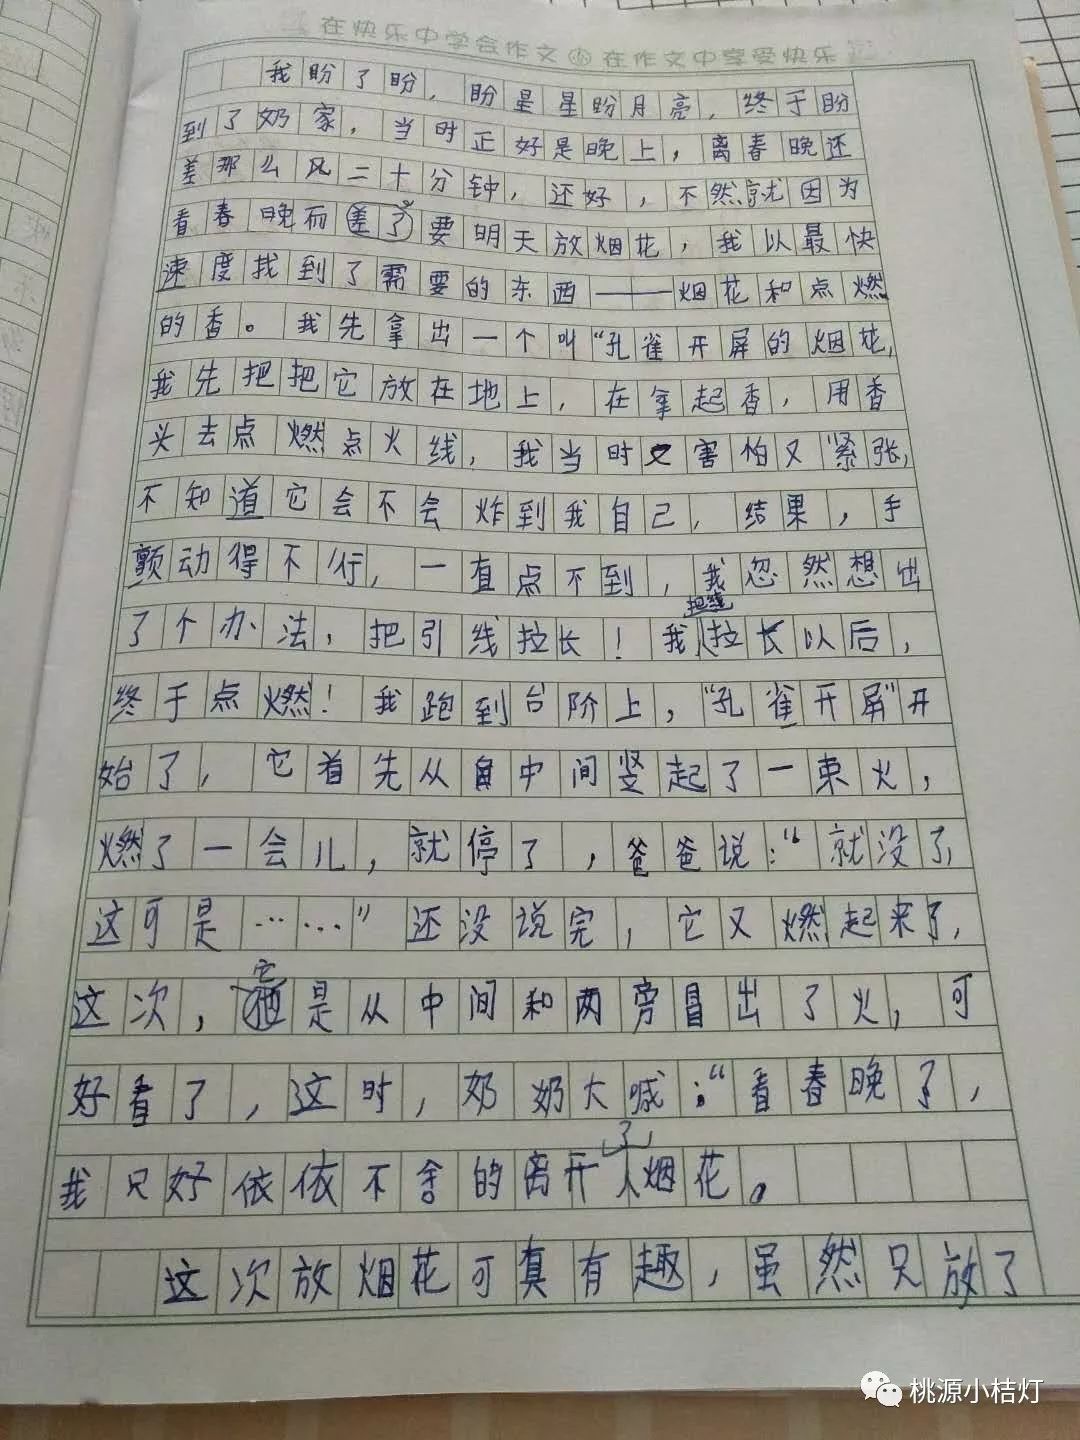 在快乐中学会作文 在作文中享受快乐
我盼了盼，盼星星盼月亮，终于盼
到了奶家，当时正好是晚上，离春晚还
差那么风二十分钟，还好，不然就因为
看春晚而差了要明天放烟花，我以最快
速度找到了需要的东西——烟花和点燃
的香。我先拿出一个叫“孔雀开屏的烟花，
我先把把它放在地上，在拿起香，用香
头去点燃点火线，我当时又害怕又紧张，
不知道它会不会炸到我自己，结果，手
颤动得不行，一直点不到，我忽然想出
了个办法，把引线拉长！我把线拉长以后，
终于点燃！我跑到台阶上，“孔雀开屏”开
始了，它首先从中间竖起了一束火，
燃了一会儿，就停了，爸爸说：“就没了，
这可是……”还没说完，它又燃起来了，
这次，它是从中间和两旁冒出了火，可
好看了，这时，奶奶大喊：“看春晚了，
我只好依依不舍的离开了烟花。
这次放烟花可真有趣，虽然只放了
桃源小桔灯